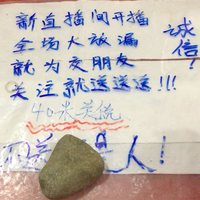 新直播间开播
全场大放漏
就为交朋友
关注就送送送!!!
40米关统
人!
诚信!